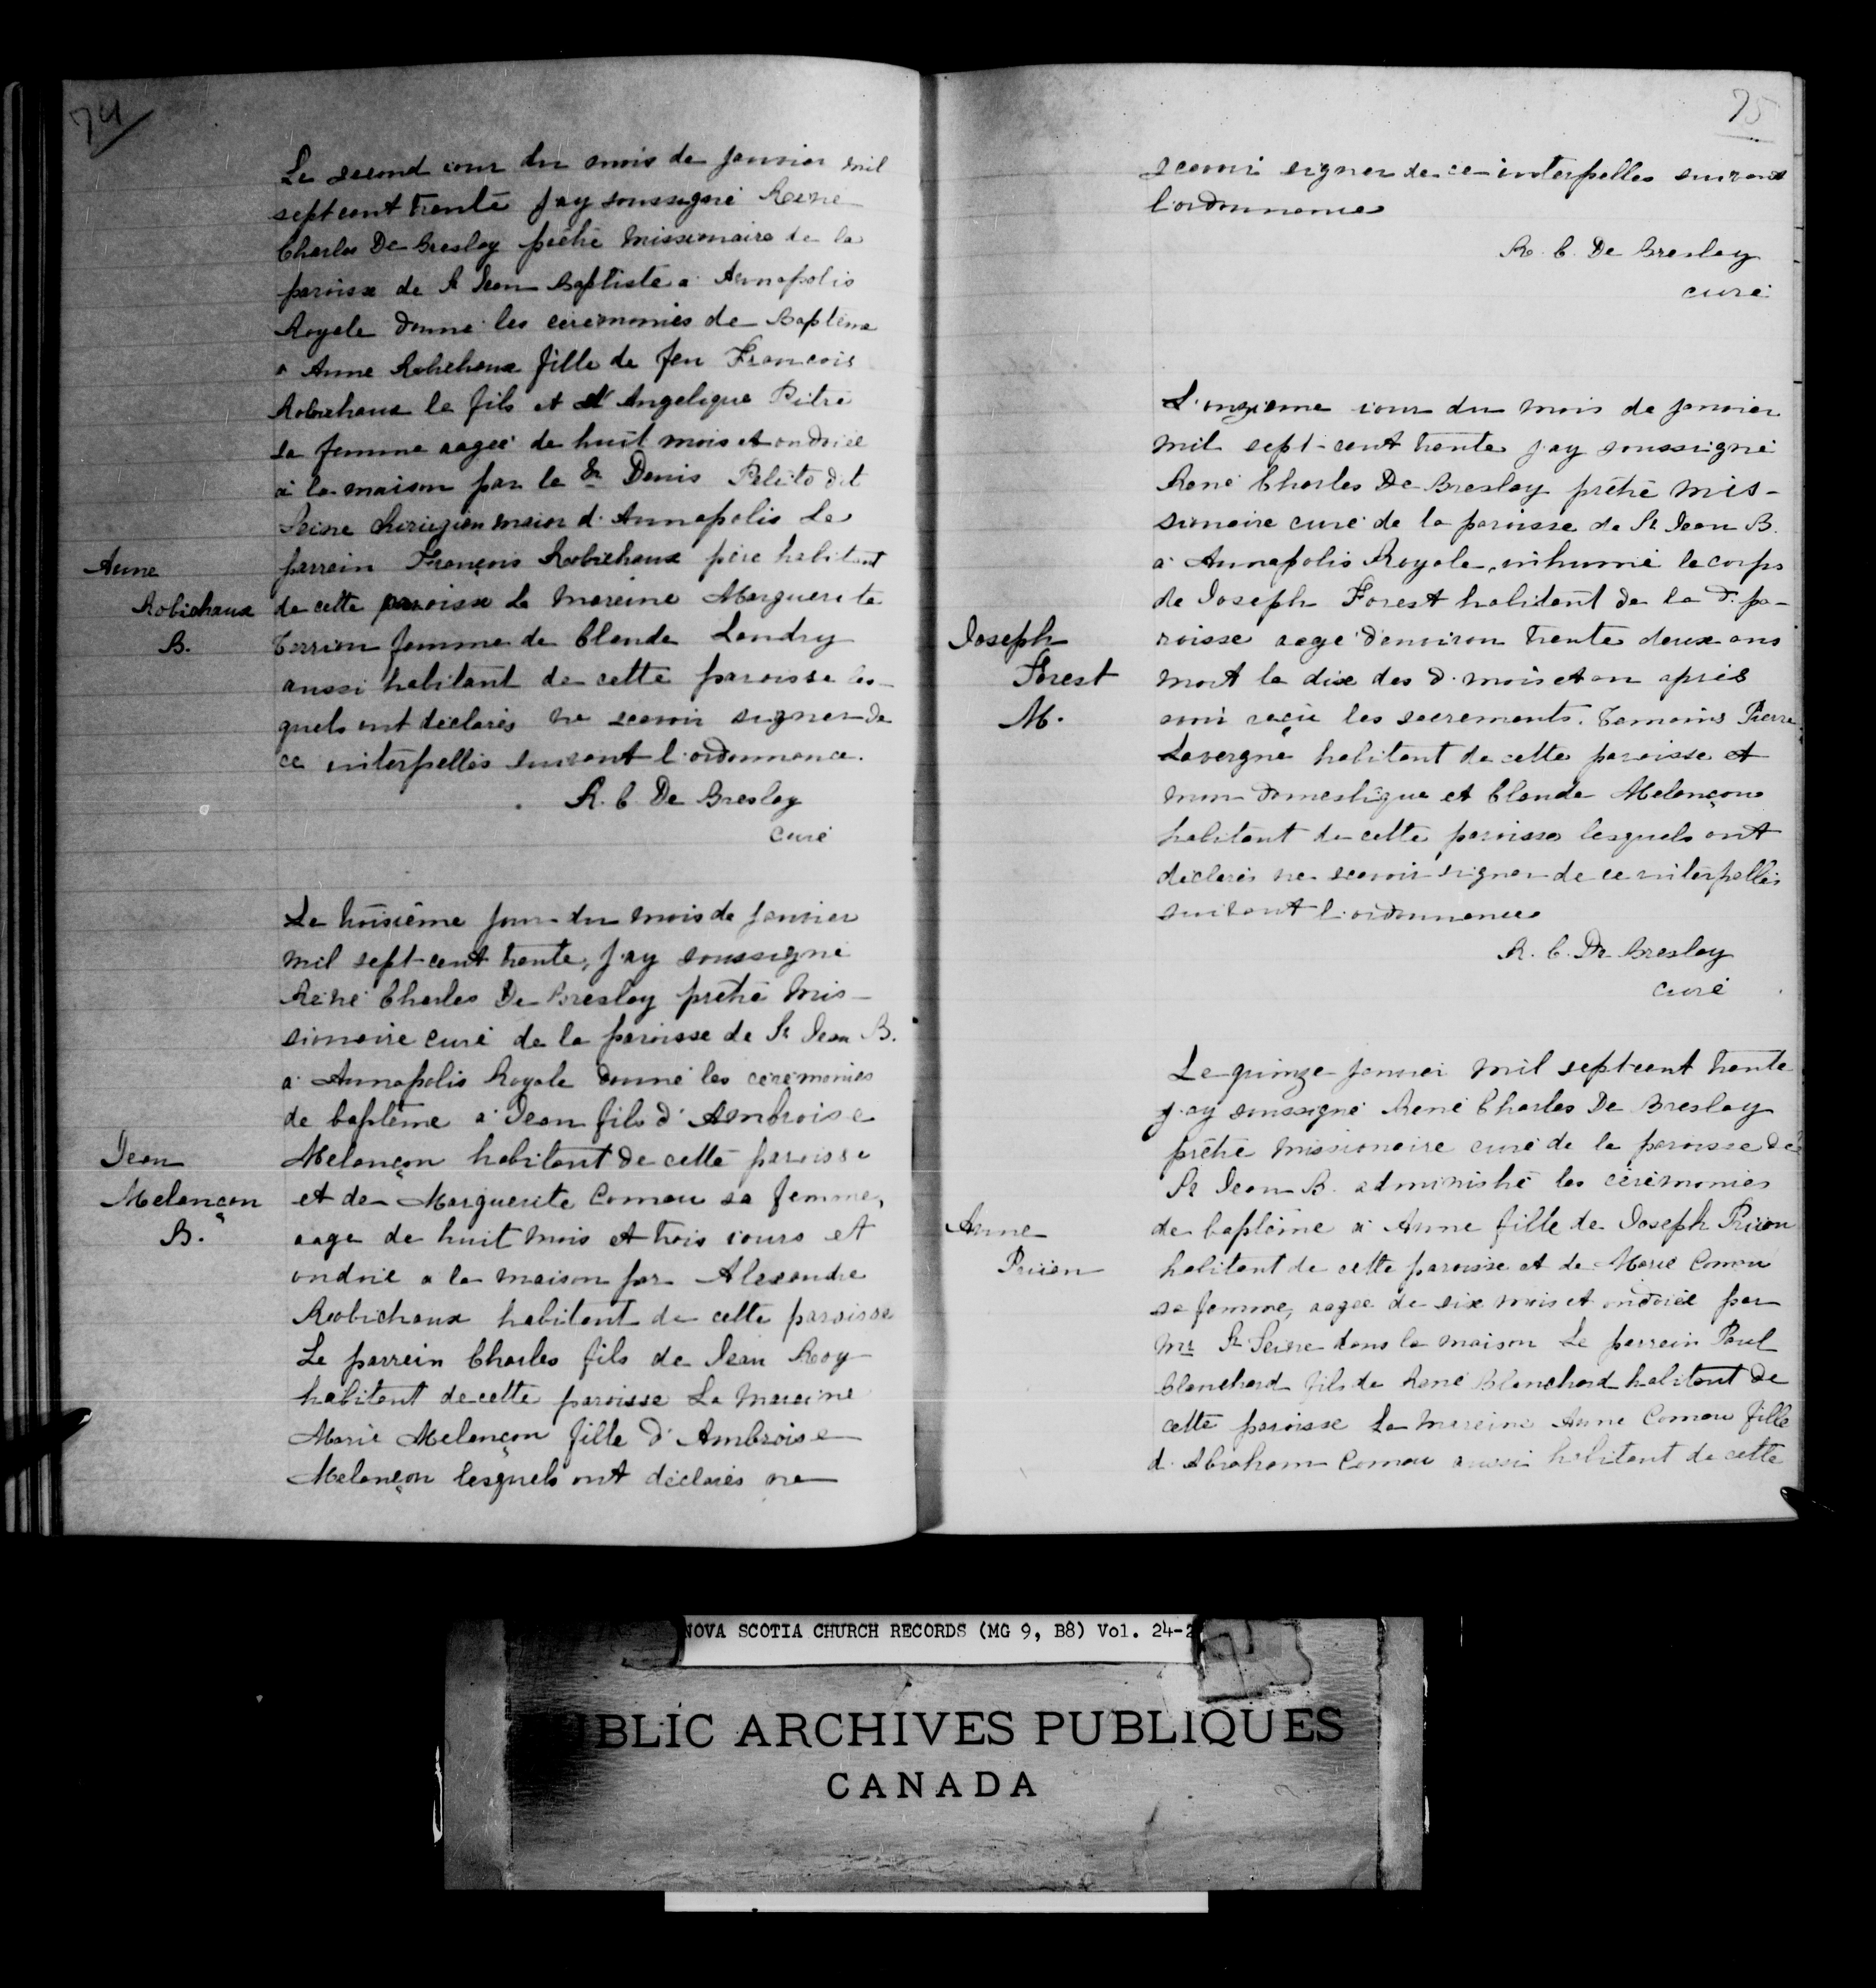 74
Le second iour du mois de Janvier mil
sept cent trente J'ay soussigné Réné
Charles De Breslay prêtre missionaire de la
paroisse de St Jean Baptiste a Annapolis
Royale donné les cérémonies de Baptême
a Anne Robichaux fille de feu François
Robichaux le fils et d'Angelique Pitre
sa femme aagée de huit mois et ondoiée
à la maison par le Sr Denis Petito dit
Seine chirugien maior d'Annapolis Le
parrain François Robichaux père habitant
de cette paroisse La mareine Marguerite
Terrion femme de Claude Landry
aussi habitant de cette paroisse les-
quels ont déclarés ne scavoir signer de
ce interpellés suivant l'ordonnance.
R. C. De Breslay
curé
Anne
Robichaux
B.
Le troisième jour du mois de janvier
mil sept-cent trente, J'ay soussigné
Réné Charles De Breslay prêtre mis-
sionaire curé de la paroisse de St Jean B.
a Annapolis Royale donné les cérémonies
de baptême a Jean fils d'Ambroise
Melançon habitant de cette paroisse
et de Marguerite Comau sa femme,
aagé de huit mois et trois iours et
ondoié a la maison par Alexandre
Robichaux habitant de cette paroisse
Le parrein Charles fils de Jean Roy
habitant de cette paroisse La mareine
Marie Melançon fille d'Ambroise
Melançon lesquels ont déclarés ne
Jean
Melançon
B.
75
scavoir signer de ce interpelles suivant
l'ordonnance
R. C. De Breslay
curé
L'onzième iour du mois de janvier
mil sept-cent trente j'ay soussigné
René Charles De Breslay prêtre mis-
sionaire curé de la paroisse de St Jean B.
a Annapolis Royale, inhumé le corps
de Joseph Forest habitant de la d. pa-
roisse aagé d'environ trente deux ans
mort le dix des d. mois et an après
avoir reçu les sacrements. Temoins Pierre
Lavergne habitant de cette paroisse et
mon domestique et Claude Melançon
habitant de cette paroisse lesquels ont
déclarés ne scavoir signer de ce interpellés
suivant l'ordonnance
R. C. De Breslay
curé
Joseph
Forest
M.
Le quinze janvier mil sept-cent trente
j'ay soussigné René Charles De Breslay
prêtre missionaire curé de la paroisse de
St Jean B. administré les cérémonies
de baptême a Anne fille de Joseph Prijan
habitant de cette paroisse et de Marie Comau
sa femme, aagée de six mois et ondoiée par
Mr St Seine dans la maison Le parrein Paul
Blanchard fils de René Blanchard habitant de
cette paroisse La mareine Anne Comau fille
d'Abraham Comau aussi habitant de cette
Anne
NOVA SCOTIA CHURCH RECORDS (MG 9, B8) Vol. 24-2
PUBLIC ARCHIVES PUBLIQUES
CANADA